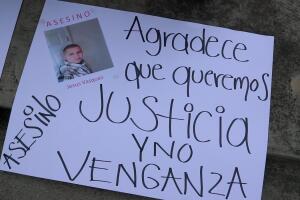 ASESINO
Jesus Vazquez
Agradece
que queremos
JUSTICIA
Y NO
VENGANZA
ASESINO